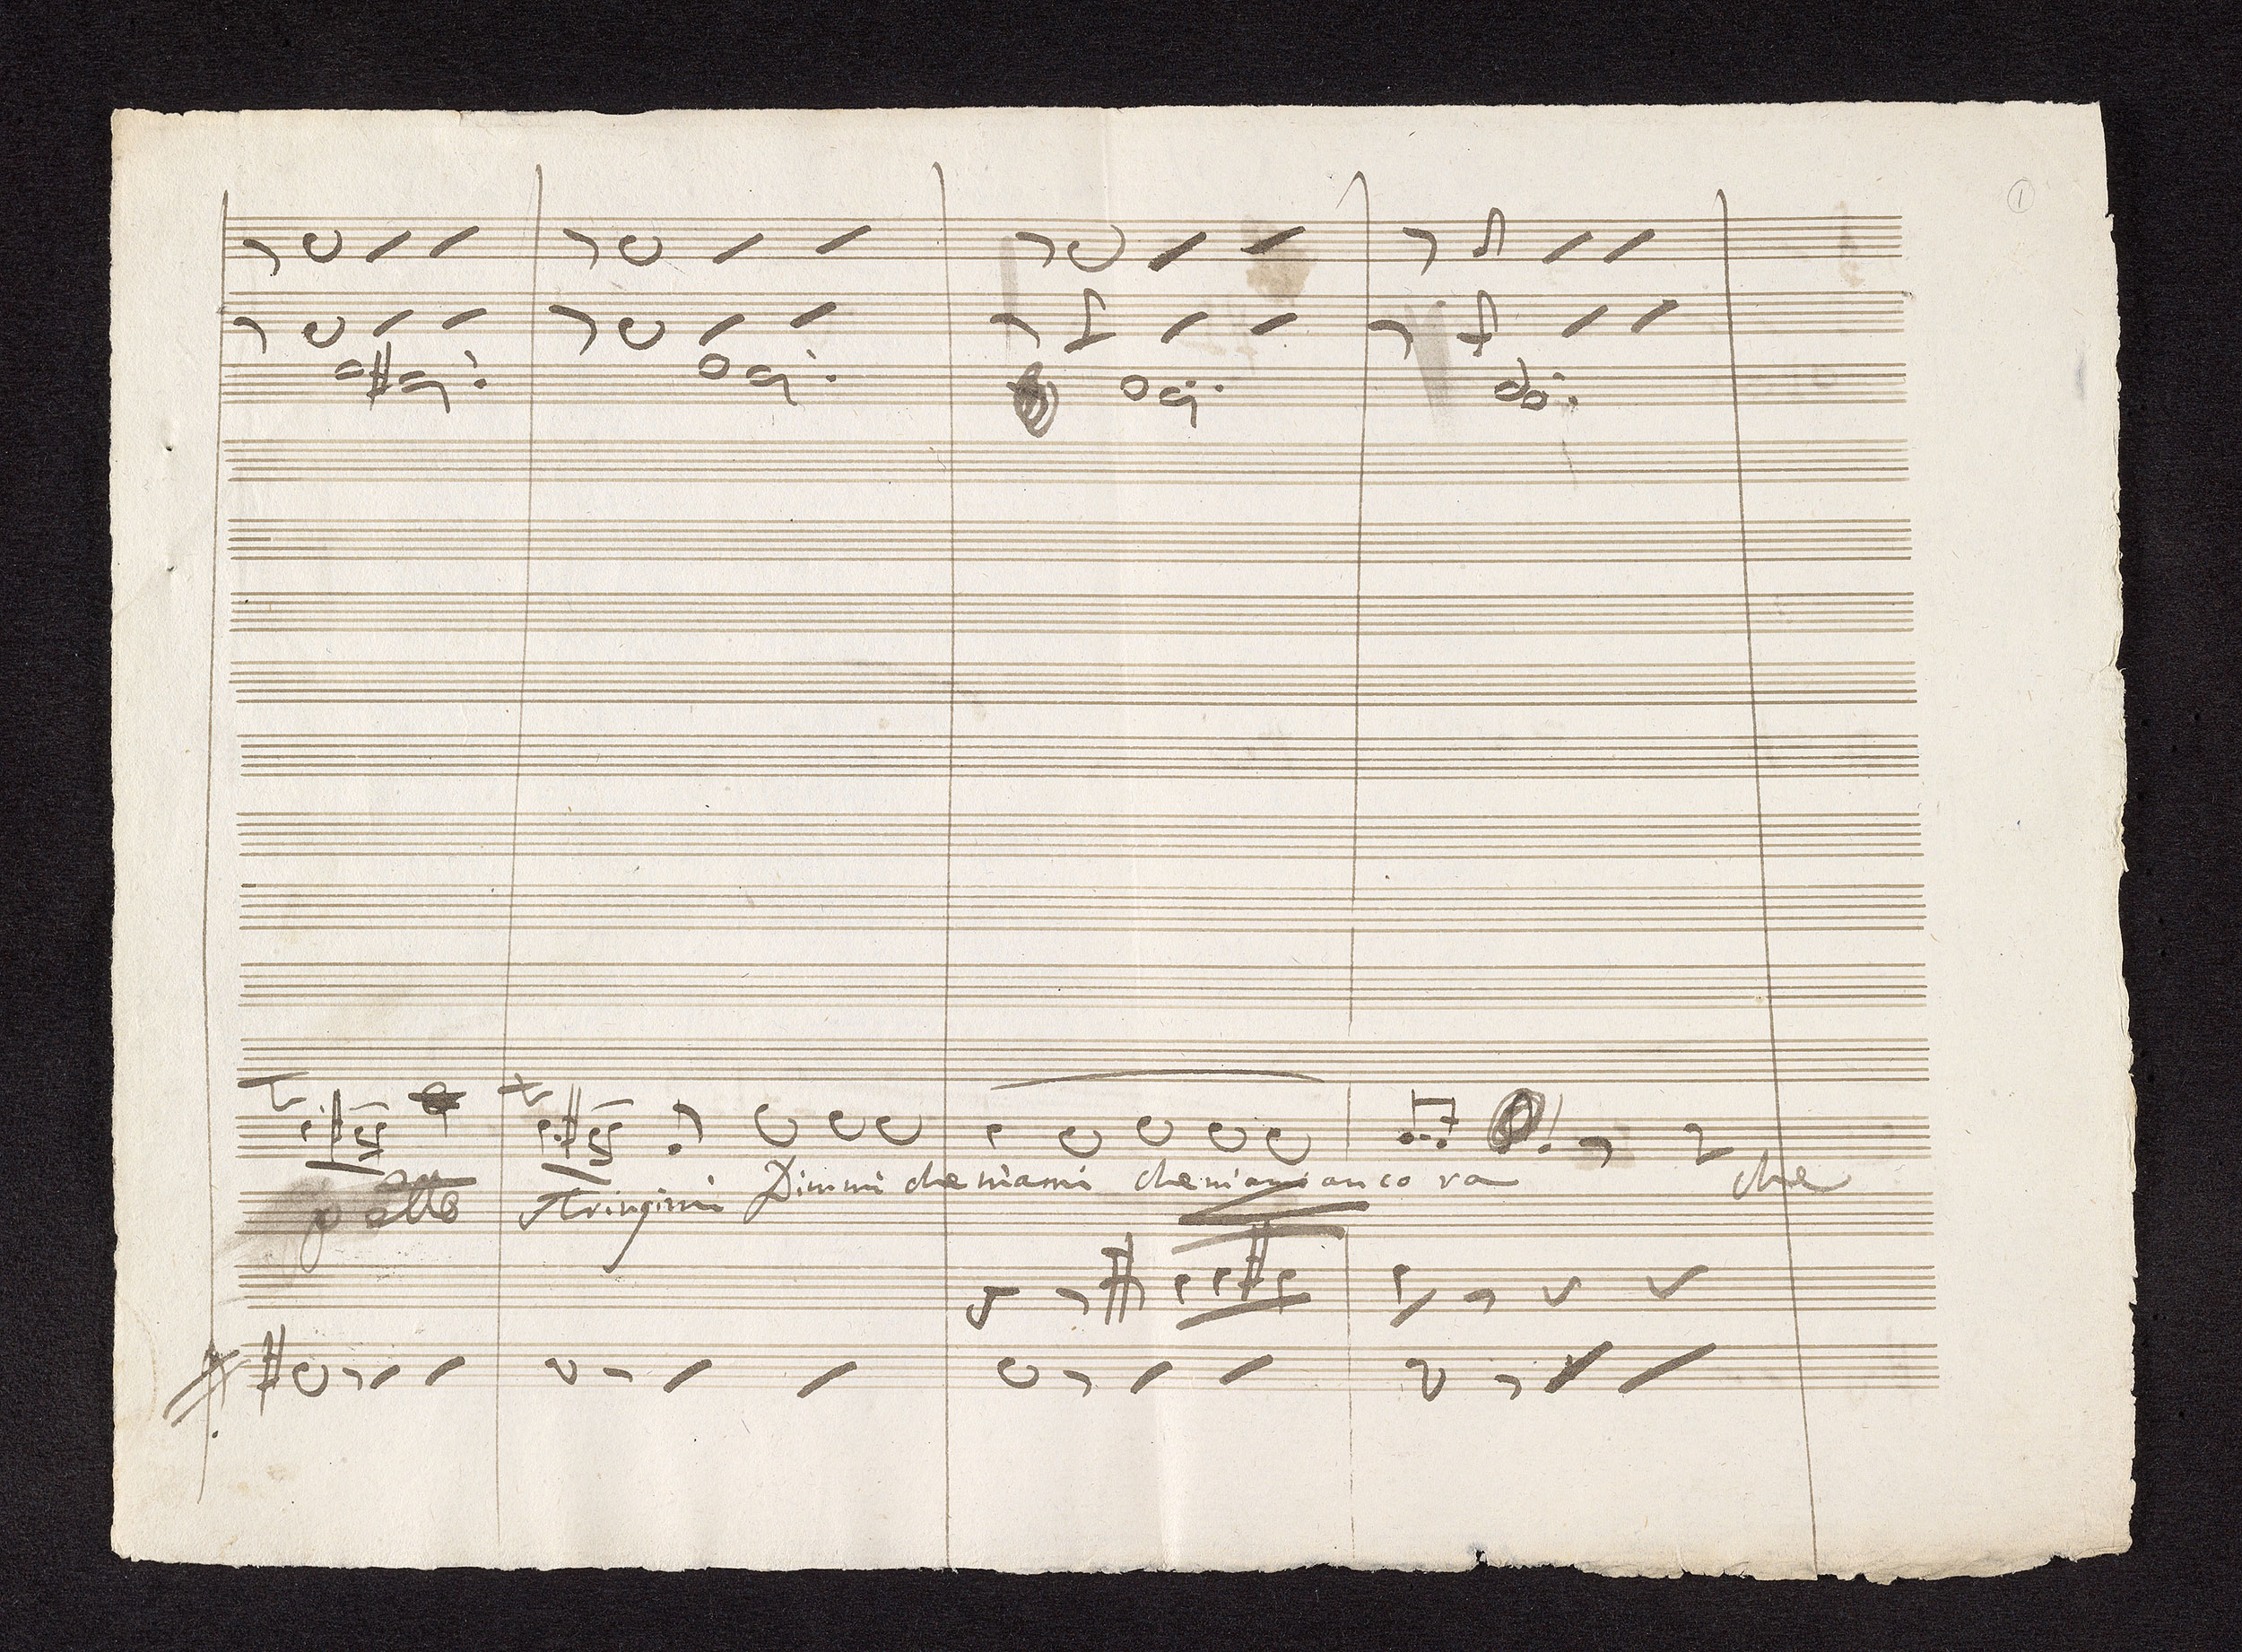 1
Dimmi che m'ami che m'ami ancora che
petto stringimi